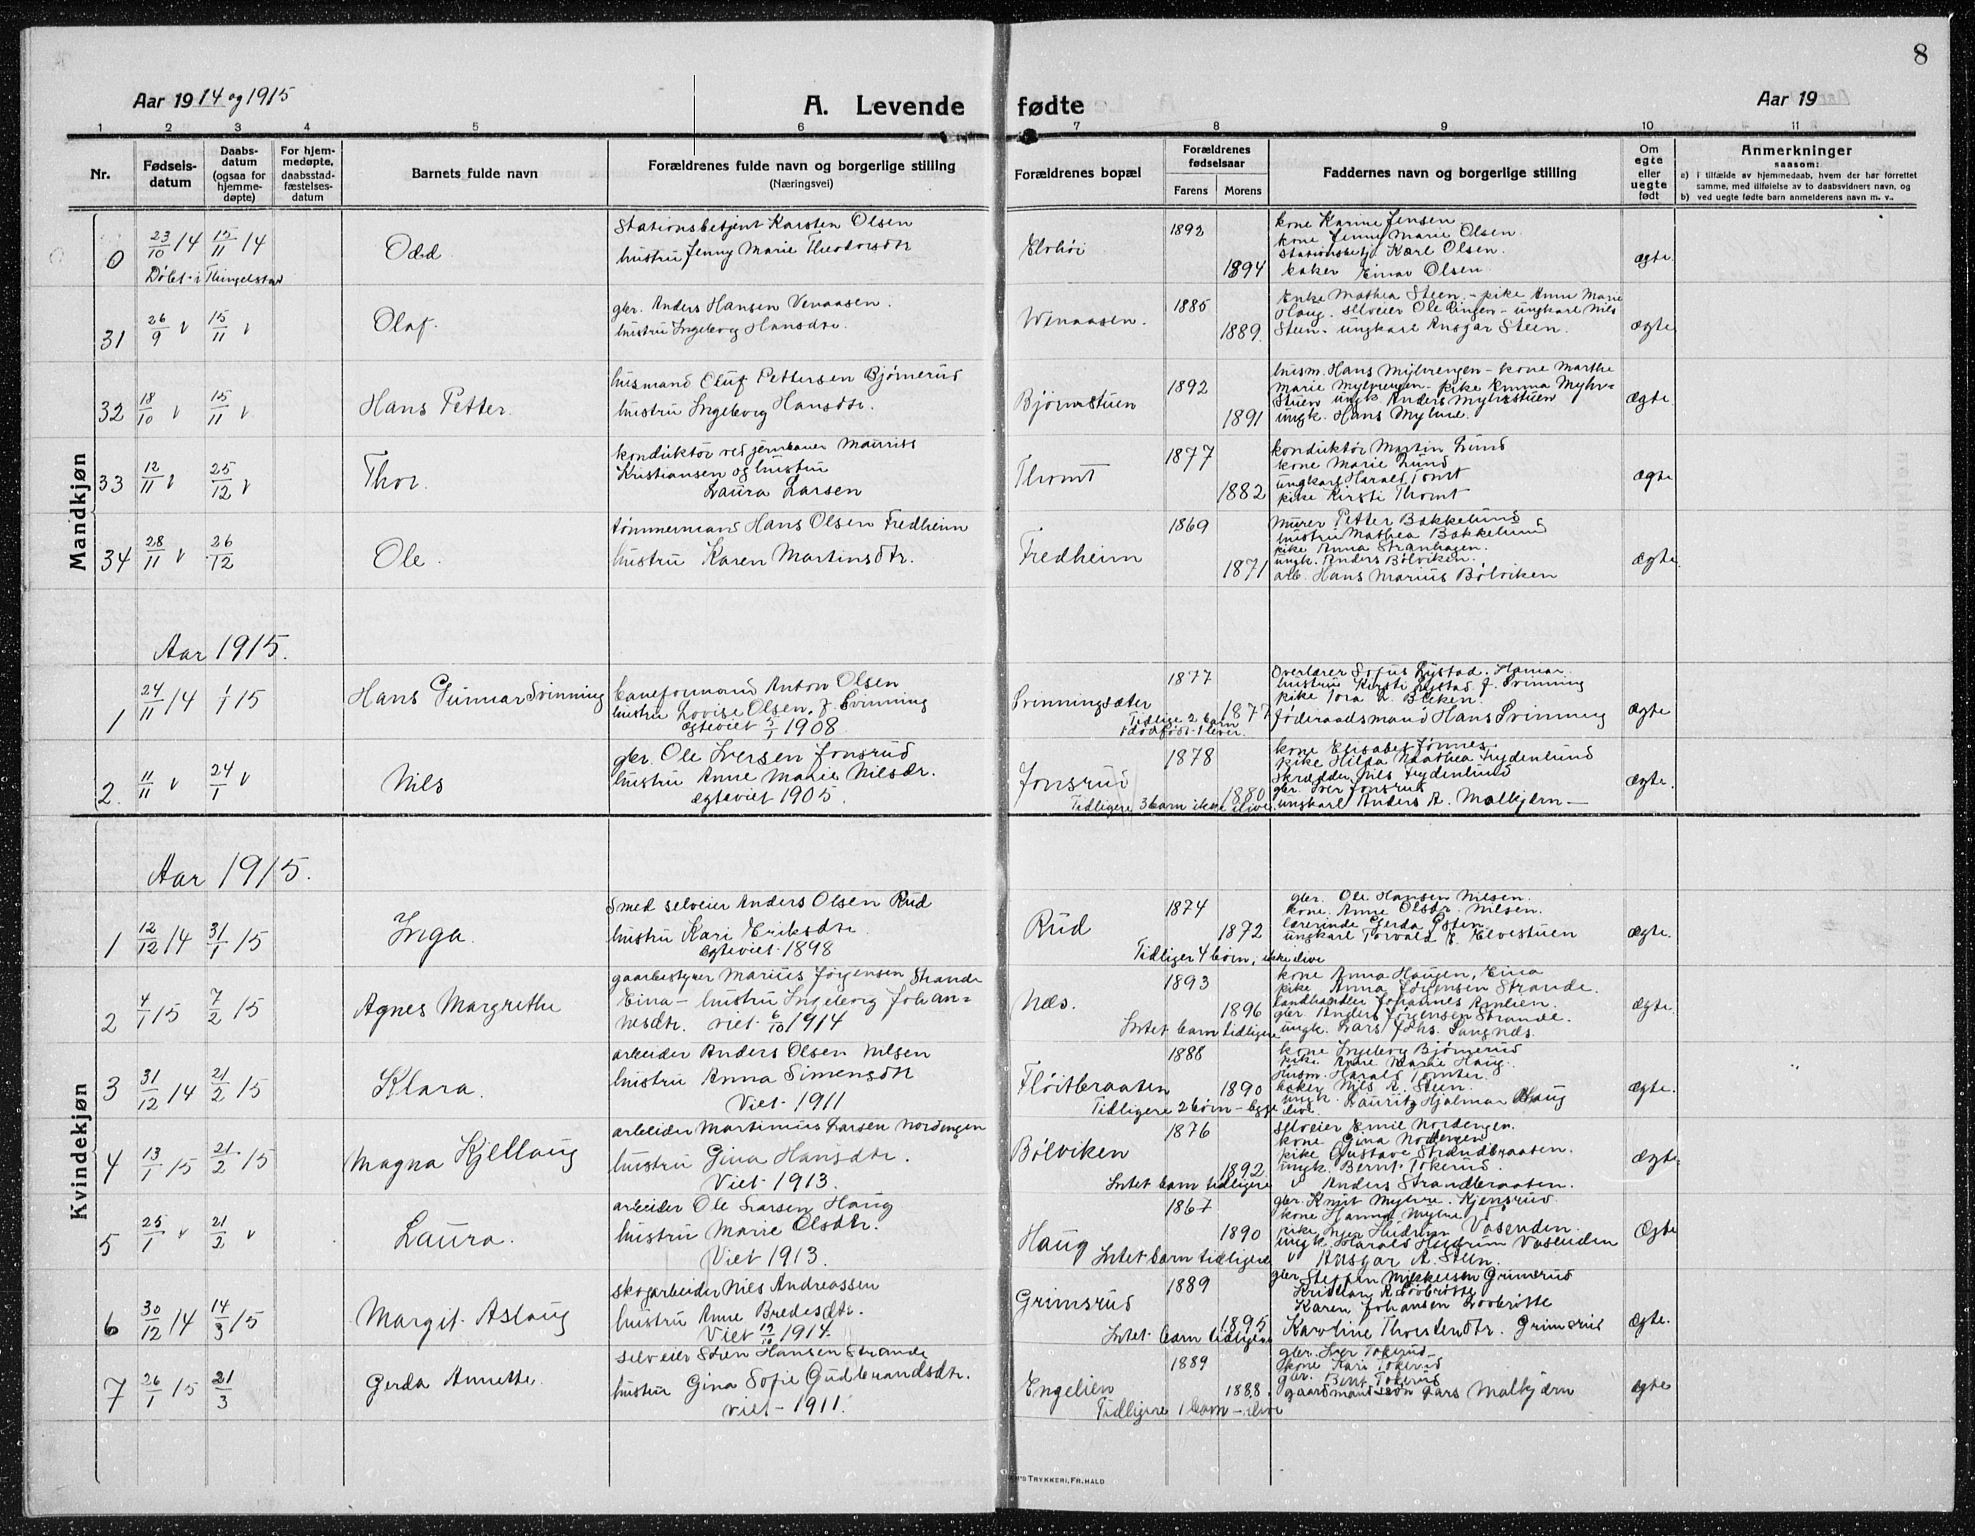 8
Aar 1914 og 1915
A. Levende fødte
Aar 19
1 2 3 4 5 6 7 8 9 10 11
Nr.
Fødsels-
datum
Daabs-
datum
(ogsaa for
hjemme-
døpte)
For hjem-
medøpte,
daabsstad-
fæstelses-
datum
Barnets fulde navn
Forældrenes fulde navn og borgerlige stilling
(Næringsvei)
Forældrenes bopæl
Forældrenes
fødselsaar
Farens Morens
Faddernes navn og borgerlige stilling
Om
egte
eller
uegte
født
Anmerkninger
saasom:
a) i tilfælde av hjemmedaab, hvem der har forrettet
samme, med tilføielse av to daabsvidners navn, og
b) ved uegte fødte barn anmelderens navn m. v.
Mandkjøn
0 23/10 14 15/11 14 Odd
Døbt i Thingelstad
Stationsbetjent Karsten Olsen
hustru Jenny Marie Theodorsdtr
1892 1894
kone Karine Jensen
kone Jenny Marie Olsen
Stationsbetj. Karl Olsen.
baker Einar Olsen.
ægte
31 26/9 " 15/11 " Olaf.
gbr. Anders Hansen Venaasen.
hustru Ingeborg Hansdtr.
Wenaasen. 1885 1889
Enke Mathea Steen. - pike Anne Marie
Haug. selveier Ole Ringen - ungkarl Nils
Steen - ungkarl Ansgar Steen.
ægte
32 18/10 " 15/11 " Hans Petter.
husmand Oluf Pettersen Bjørnerud
hustru Ingeborg Hansdtr.
Bjørnstuen 1892 1891
husm. Hans Myhrengen - kone Marthe
Marie Myhrengen - pike Emma Myhr-
stuen ungk. Anders Myhrstuen
ungk. Hans Myhre.
ægte
33 12/11 " 25/12 " Thor.
konduktør ved jernbanen Mauritz
Kristiansen og hustru
Laura Larsen
Thomt 1877 1882
konduktør Martin Lund
kone Marie Lund
ungkarl Harald Tomt
pike Kirsti Thomt
ægte
34 28/11 " 26/12 Ole.
tømmermand Hans Olsen Fredheim
hustru Karen Martinsdtr.
Fredheim 1869 1871
Murer Petter Bakkelund
hustru Mathea Bakkelund
pike Anna Stranhagen.
ungk. Anders Bølviken.
arb. Hans Marius Bølviken
ægte
Aar 1915.
1 24/11 14 1/1 15 Hans Gunnar Svinning
baneformand Anton Olsen
hustru Lovise Olsen, f. Svinning
egteviet 5/1 1908
Svinningsæter 1877 1877
Tidlige 2 barn
1 dødføst - 1 lever.
Overlærer Sofus Lystad. Hamar.
hustru Kirsti Lystad f. Svinning
pike Tora L. Bleken.
føderaadsmand Hans Svinning
ægte
2. 11/11 " 24/1 " Nils
gbr. Ole Iversen Jonsrud
hustru Anne Marie Nilsdr.
egteviet 1905.
Jonsrud 1878 1880
Tidligere 3 barn ikke ilive
kone Elisabet Jønnes.
pike Hilda Mathea Frydenlund
Skrædder Nils Frydenlund
gbr. Iver Jonsrud
ungkarl Anders A. Molbjærn -
ægte.
Kvindekjøn
Aar 1915.
1 12/12 14 31/1 15 Inga
Smed selveier Anders Olsen Rud
hustru Kari Eriksdtr.
egteviet 1898
Rud 1874 1872
Tidliger 4 børn, ikke ilive
gbr. Ole Hansen Nilsen.
kone. Anne Olsdr. Nilsen.
lærerinde Gerda Østen
ungkarl Torvald E. Elvestuen
ægte.
2 4/1 15 7/2 15 Agnes Margrethe
gaarbestyrer Marius Jørgensen Strande
Eina - hustru Ingeborg Johan-
nesdtr. viet 6/10 1914
Næs. 1893 1896
Intet barn tidligere
kone Anna Haugen, Eina
pike Anna Jørgensen Strande.
landhandler Johannes Amlien.
gbr. Anders Jørgensen Strande.
ungk. Lars Johs. Langnæs.
ægte.
3 31/12 14 21/2 15 Klara.
arbeider Anders Olsen Nilsen
hustru Anna Simensdtr
Viet 1911
Fløitbraaten 1888 1890
Tidligere 2 børn - begge ilive.
kone Ingeborg Bjørnerud
pike Anne Marie Haug.
husm. Harald Tomter.
baker Nils A. Steen.
ungk. Lauritz Hjalmar Haug
ægte.
4 13/1 15 21/2 15 Magna Kjellaug
arbeider Martinius Larsen Nordengen
hustru Gina Hansdtr.
Viet 1913.
Bølviken 1876 1892
Intet barn tidligere
selveier Emil Nordengen.
kone Gina Nordengen
pike Gustave Strandbraaten.
ungk. Bernt Tokerud.
" Anders Strandbraaten.
ægte
5 25/1 " 21/2 " Laura.
arbeider Ole Larsen Haug
hustru Marie Olsdtr.
Viet 1913.
Haug 1867 1890
Intet barn tidligere
gbr. Knut Myhre. Kjensrud
kone Hanna Myhre
pike Inga Heidrum Vasenden.
ungk. Harald Heidrum Vasenden
" Ansgar A. Steen.
Ægte
6 30/12 14 14/3 15 Margit Aslaug
skogarbeider Nils Andreassen
hustru Anne Bredesdtr.
Viet 12/10 1914.
Grimsrud 1889 1895
Intet barn tidligere
gbr. Steffen Mikkelsen Grimsrud
Karen Johansen
Karoline Thorstensdtr. Grimsrud
ægte.
7 26/1 15 21/3 Gerda Annette.
selveier Sören Hansen Strande
hustru Gina Sofie Gudbrandsdtr.
viet - 1911.
Engelien 1889 1888.
Tidligere 1 barn - ilive
gbr. Iver Tokerud
kone Kari Tokerud
gbr. Bernt Tokerud
gaardmandssøn Lars Molbjærn
ægte
TRYKKERI, FR.HALD